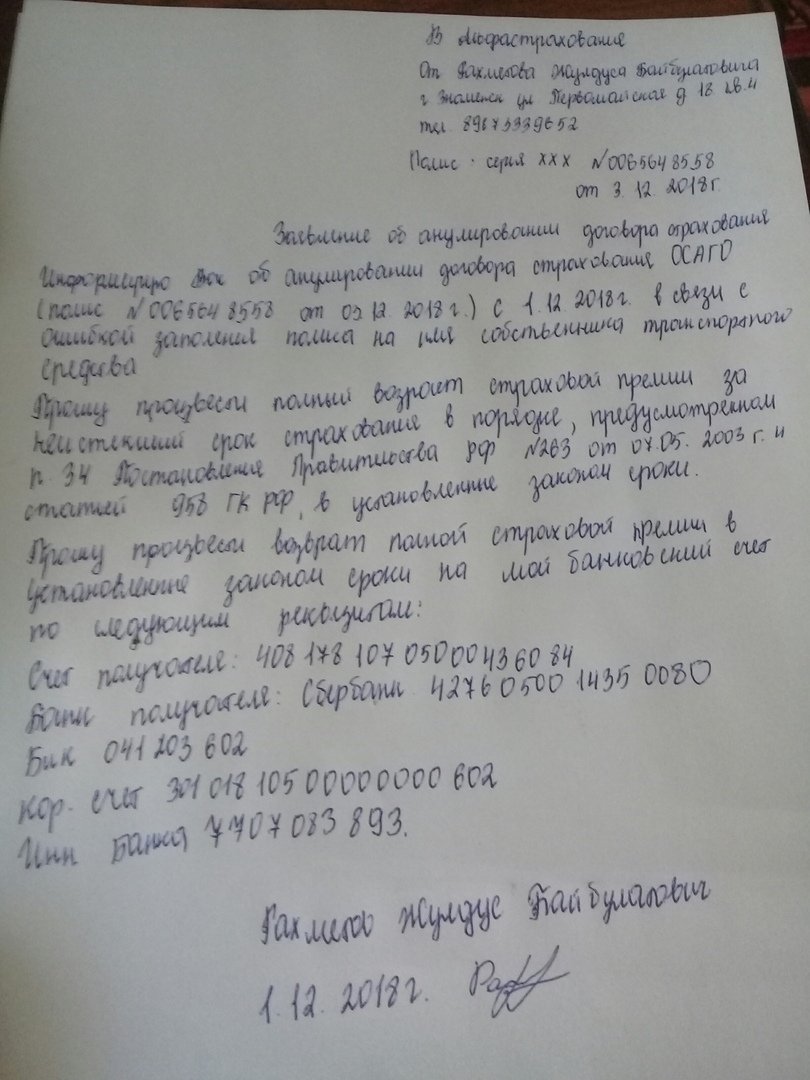 В Альфастрахование
От Рахметова Жулдуса Байбулатовича
г Знаменск ул Первомайская д 18 кв.4
тел. 89673339652
Полис. серия ХХХ №0065648558
от 3.12.2018г
Заявление об анулировании договора страхования
Информирую Вас об анулировании договора страхования ОСАГО
(полис №0065648558 от 03.12.2018г.) с 1.12.2018г. в связи с
ошибкой заполения полиса на имя собственника транспортного
средства
Прошу произвести полный возраст страховой премии за
неистекший срок страхования в порядке, предусмотренном
п. 34 Постановления Правительства РФ №263 от 07.05.2003г. и
статьёй 958 ГК РФ, в установленные законом сроки.
Прошу произвести возврат полной страховой премии в
установленные законом сроки на мой банковский счет
по следующим реквизитам:
Счет получателя: 408 178 107 05000436084
Банк получателя: Сбербанк 4276 0500 1435 0080
Бик 041 203 602
Кор. счет 301 018 105 00000000 602
Инн Банка 7707 083 893.
Рахметов Жулдус Байбулатович
1.12.2018г.